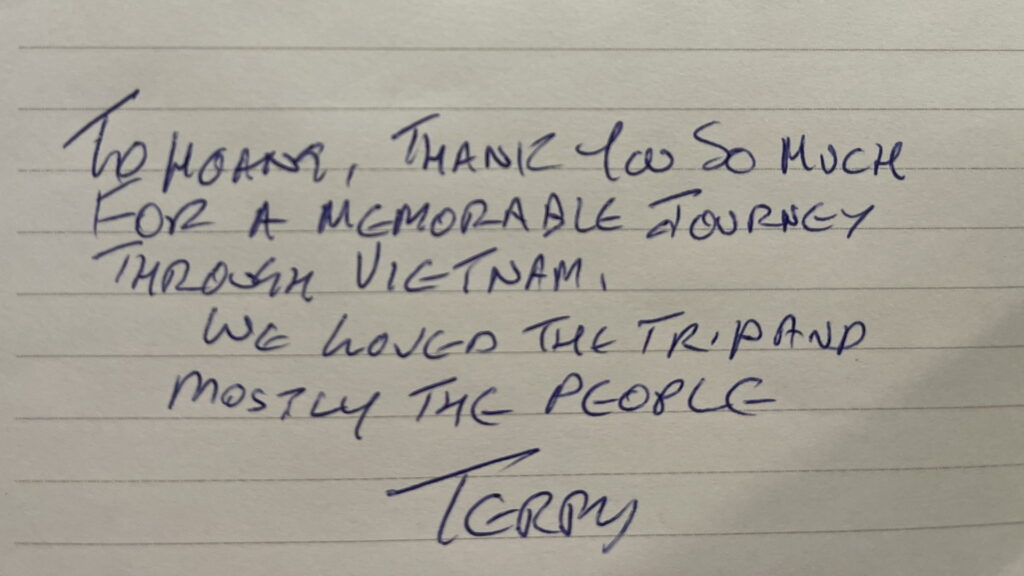 TO HOANG, THANK YOU SO MUCH
FOR A MEMORABLE JOURNEY
THROUGH VIETNAM.
WE LOVED THE TRIP AND
MOSTLY THE PEOPLE
TERRY